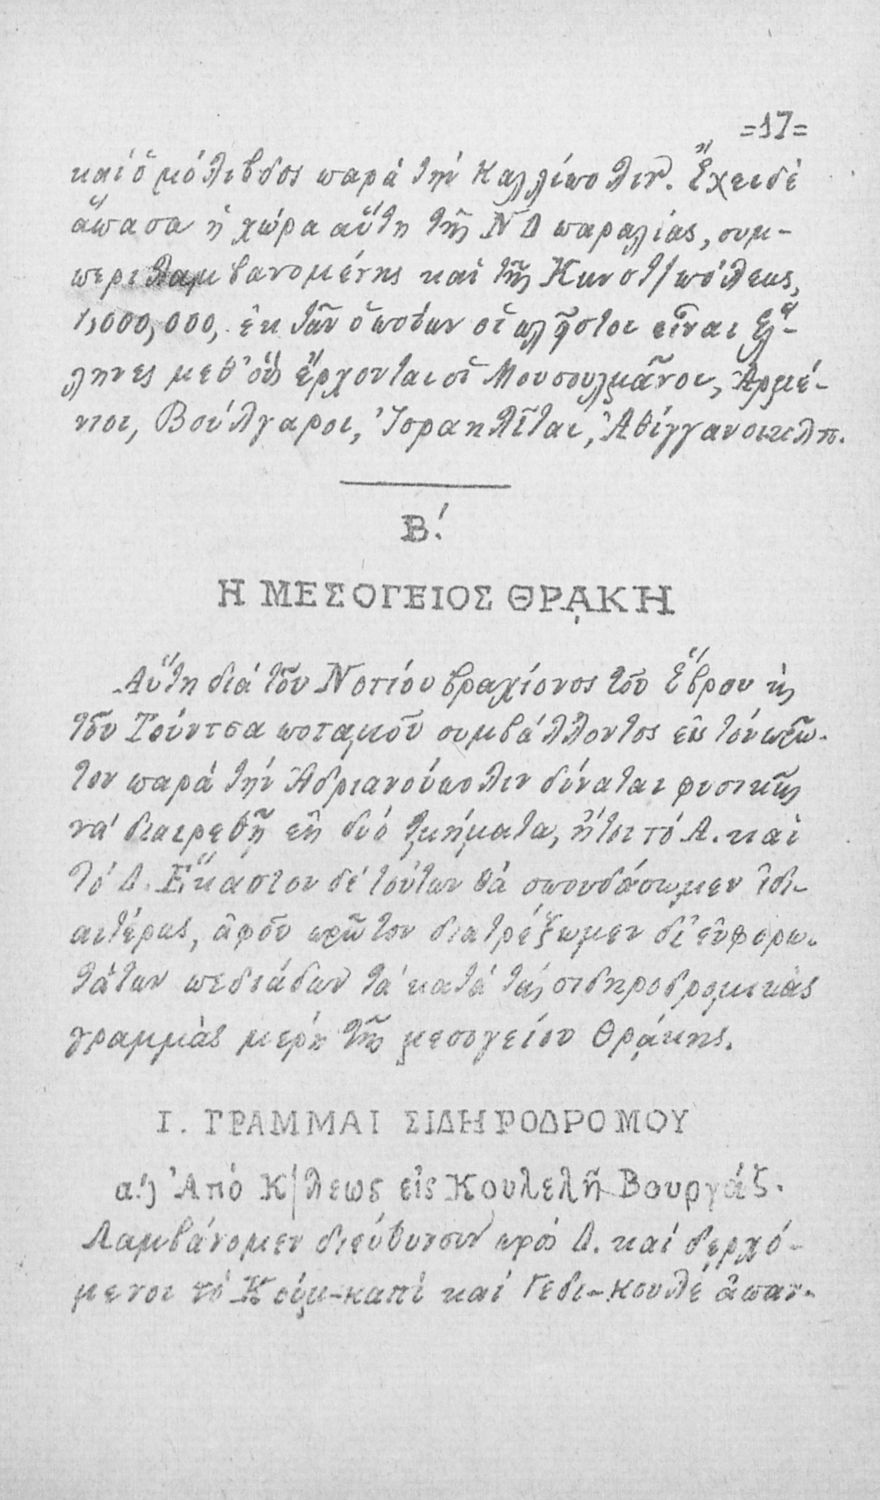 =17=
καὶ ὁ μόλιβδος παρὰ τὴν Καλλίπολιν. Ἔχει δὲ
ἅπασα ἡ χώρα αὕτη τῆς ΝΔ παραλίας, συμ-
περιλαμβανομένης καὶ τῆς Κωνστ/πόλεως,
1,000,000, ἐκ τῶν ὁποίων οἱ πλεῖστοι εἶναι Ἕλ-
ληνες μεθ' οὓς ἔρχονται οἱ Μουσουλμᾶνοι, Ἀρμέ-
νιοι, Βούλγαροι, Ἰσραηλῖται, Ἀθίγγανοι κλπ.
Β΄.
Η ΜΕΣΟΓΕΙΟΣ ΘΡΑΚΗ
Αὕτη διὰ τοῦ Νοτίου βραχίονος τοῦ Ἕβρου κ
τοῦ Τούντσα ποταμοῦ συμβάλλοντος εἰς τὸν πρῶ-
τον παρὰ τὴν Ἀδριανούπολιν δύναται φυσικῶς
νὰ διαιρεθῇ εἰς δύο τμήματα, ἤτοι τὸ Α. καὶ
τὸ Δ. Ἕκαστον δὲ τούτων θὰ σπουδάσωμεν ἰδι-
αιτέρως, ἀφοῦ πρῶτον διατρέξωμεν δι' εὐφορω-
τάτων πεδιάδων τὰ κατὰ τὰς σιδηροδρομικὰς
γραμμὰς μέρη τῆς μεσογείου Θράκης.
Ι. ΓΡΑΜΜΑΙ ΣΙΔΗΡΟΔΡΟΜΟΥ
α΄) Ἀπὸ Κ/λεως εἰς Κουλελῆ Βουργάζ.
Λαμβάνομεν διεύθυνσιν πρὸς Δ. καὶ διερχό-
μενοι τὸ Κούμ-καπὶ καὶ Γεδι-κουλὲ ἀπαν-